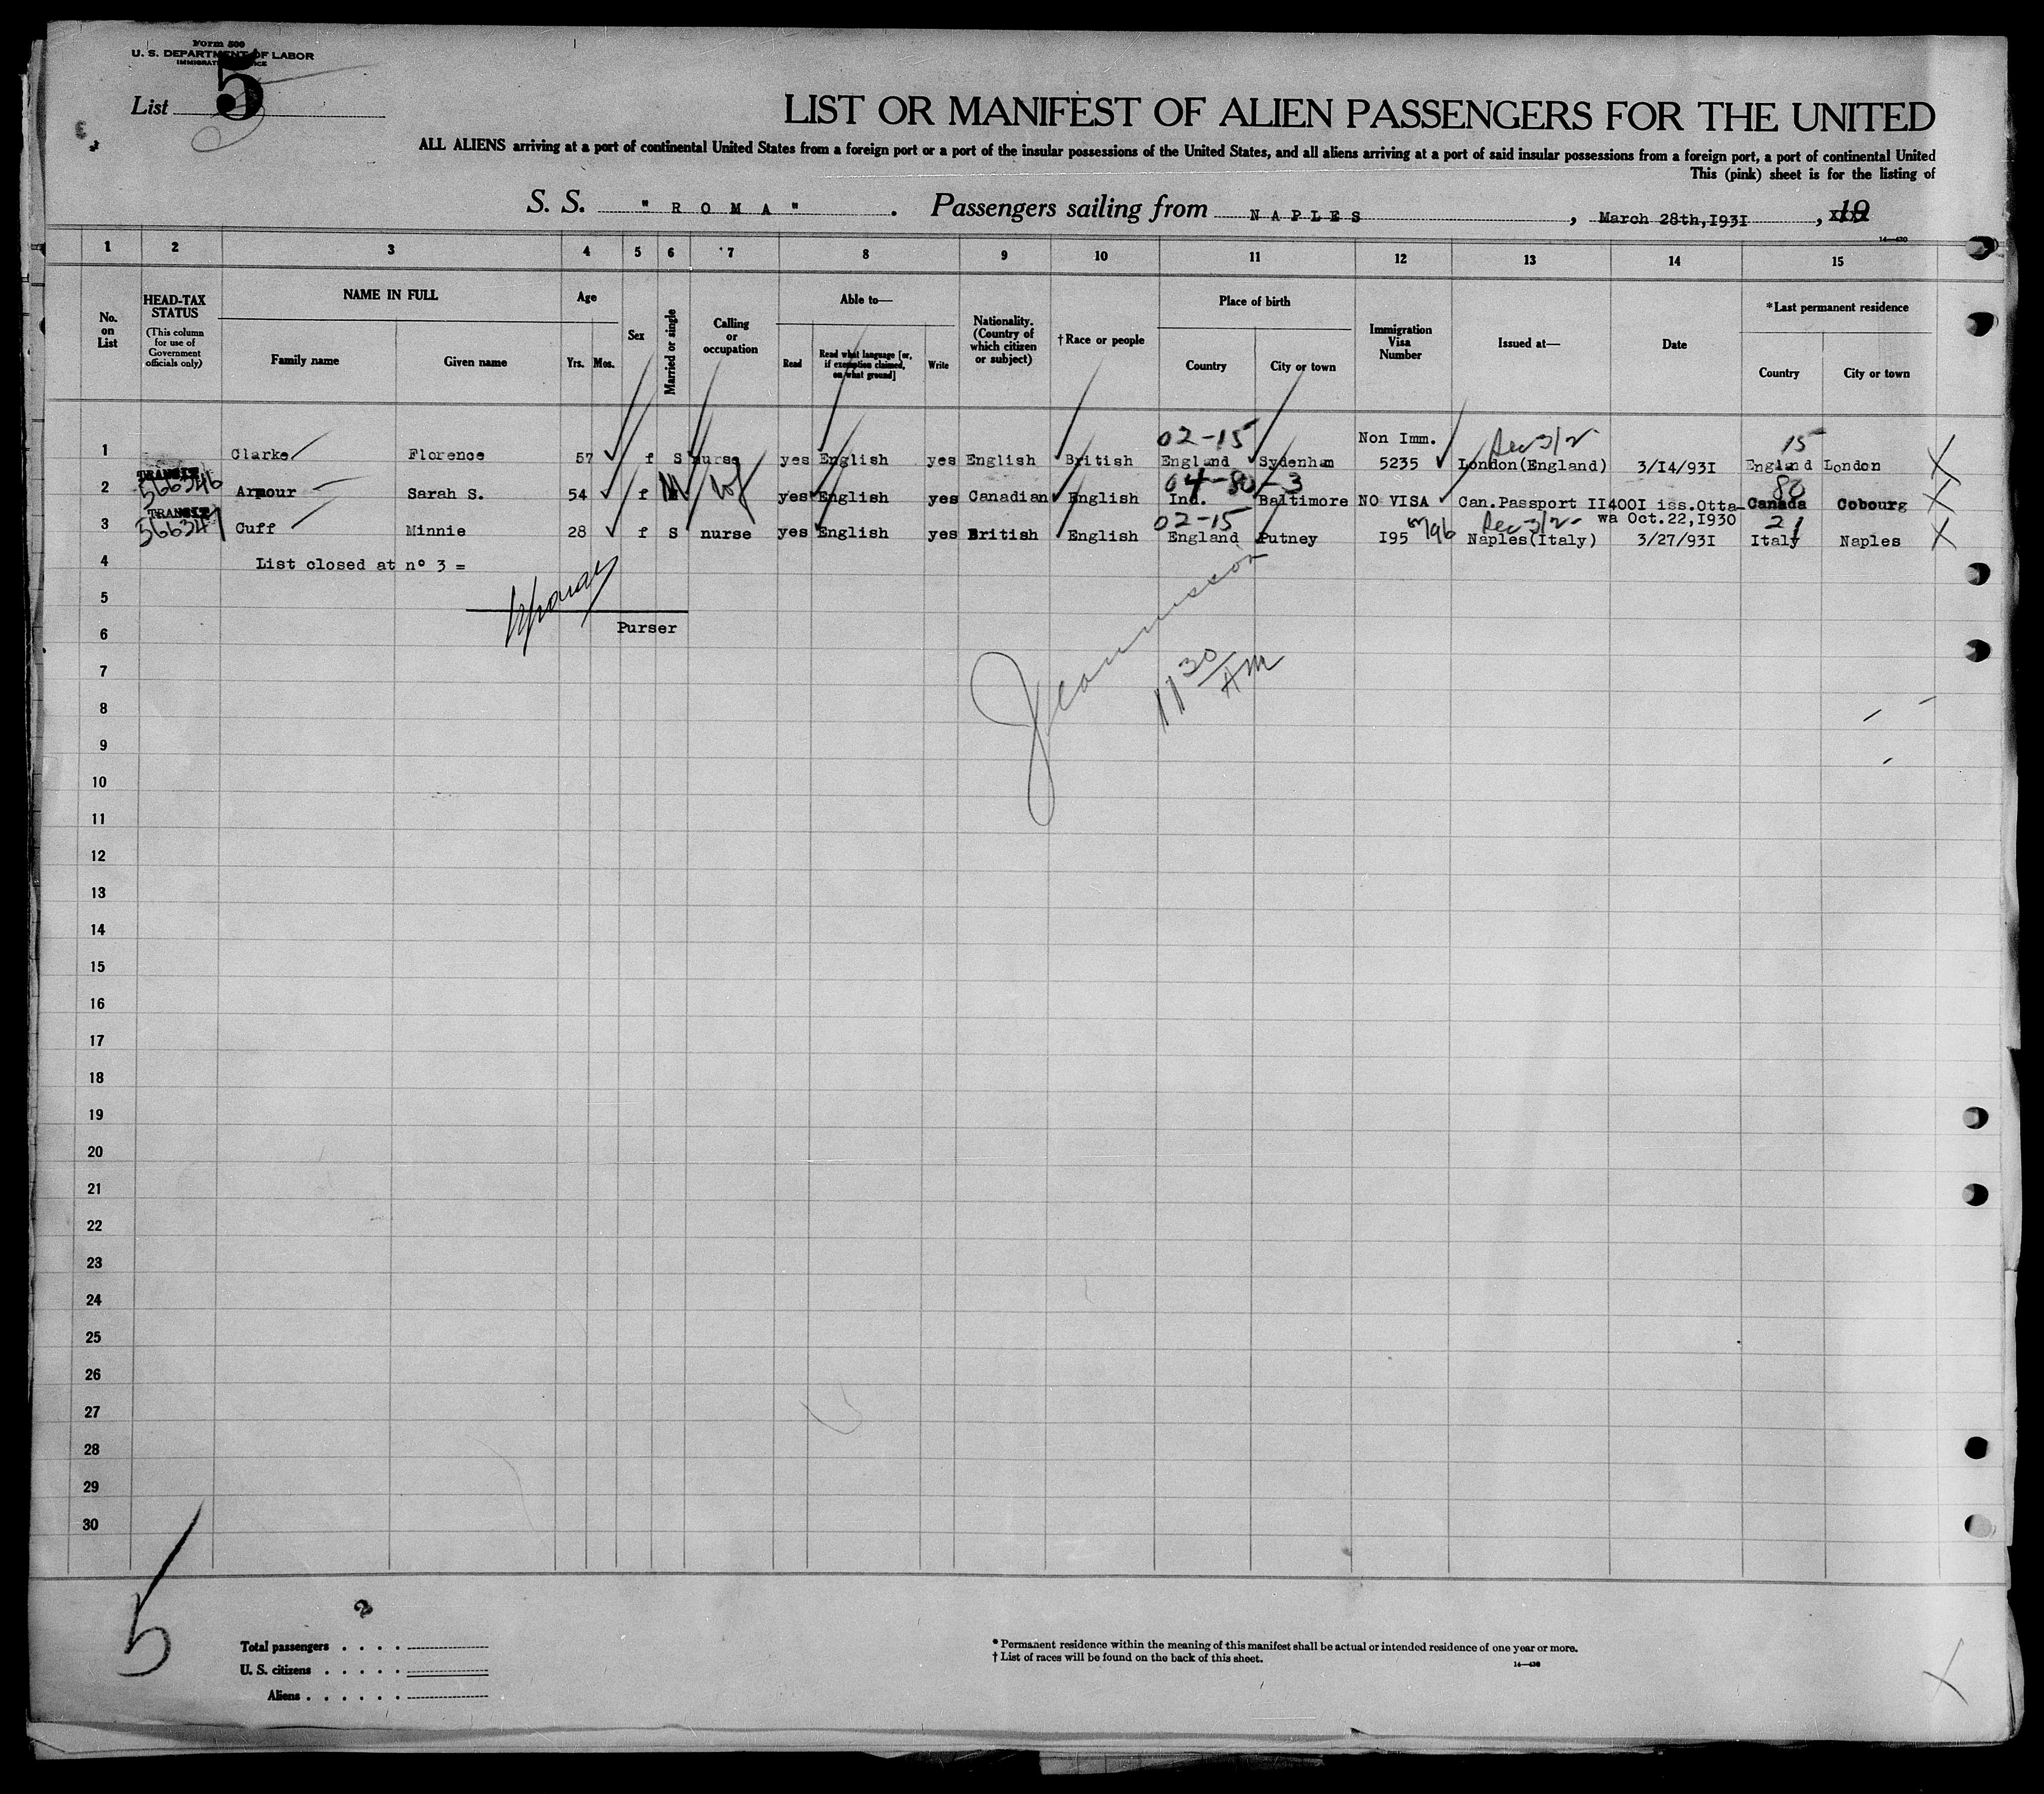 Form 500
U. S. DEPARTMENT OF LABOR
List 5
LIST OR MANIFEST OF ALIEN PASSENGERS FOR THE UNITED
ALL ALIENS arriving at a port of continental United States from a foreign port or a port of the insular possessions of the United States, and all aliens arriving at a port of said insular possessions from a foreign port, a port of continental United
This (pink) sheet is for the listing of
S. S. " R O M A " . Passengers sailing from N A P L E S , March 28th,I93I , 19
14—430
1 2 3 4 5 6 7 8 9 10 11 12 13 14 15
No. on List
HEAD-TAX STATUS (This column for use of Government officials only)
NAME IN FULL
Family name Given name
Age
Yrs. Mos.
Sex
Married or single
Calling or occupation
Able to—
Read Read what language [or, if exemption claimed, on what ground] Write
Nationality. (Country of which citizen or subject)
†Race or people
Place of birth
Country City or town
Immigration Visa Number
Issued at—
Date
*Last permanent residence
Country City or town
02-15 Non Imm. 15
1 Clarke Florence 57 f S nurse yes English yes English British England Sydenham 5235 London(England) 3/I4/93I England London
TRANSIT
566346 04-80-3 80
2 Armour Sarah S. 54 f M yes English yes Canadian English Ind. Baltimore NO VISA Can.Passport II400I iss.Otta- Canada Cobourg
TRANSIT
566347 02-15 wa Oct.22,I930 21
3 Cuff Minnie 28 f S nurse yes English yes British English England Putney I95 Naples(Italy) 3/27/93I Italy Naples
4 List closed at nº 3 =
5
6 Purser
11 30 AM
7
8
9
10
11
12
13
14
15
16
17
18
19
20
21
22
23
24
25
26
27
28
29
30
5
Total passengers . . . .
U. S. citizens . . . . .
Aliens . . . . . .
* Permanent residence within the meaning of this manifest shall be actual or intended residence of one year or more.
† List of races will be found on the back of this sheet.
14—430